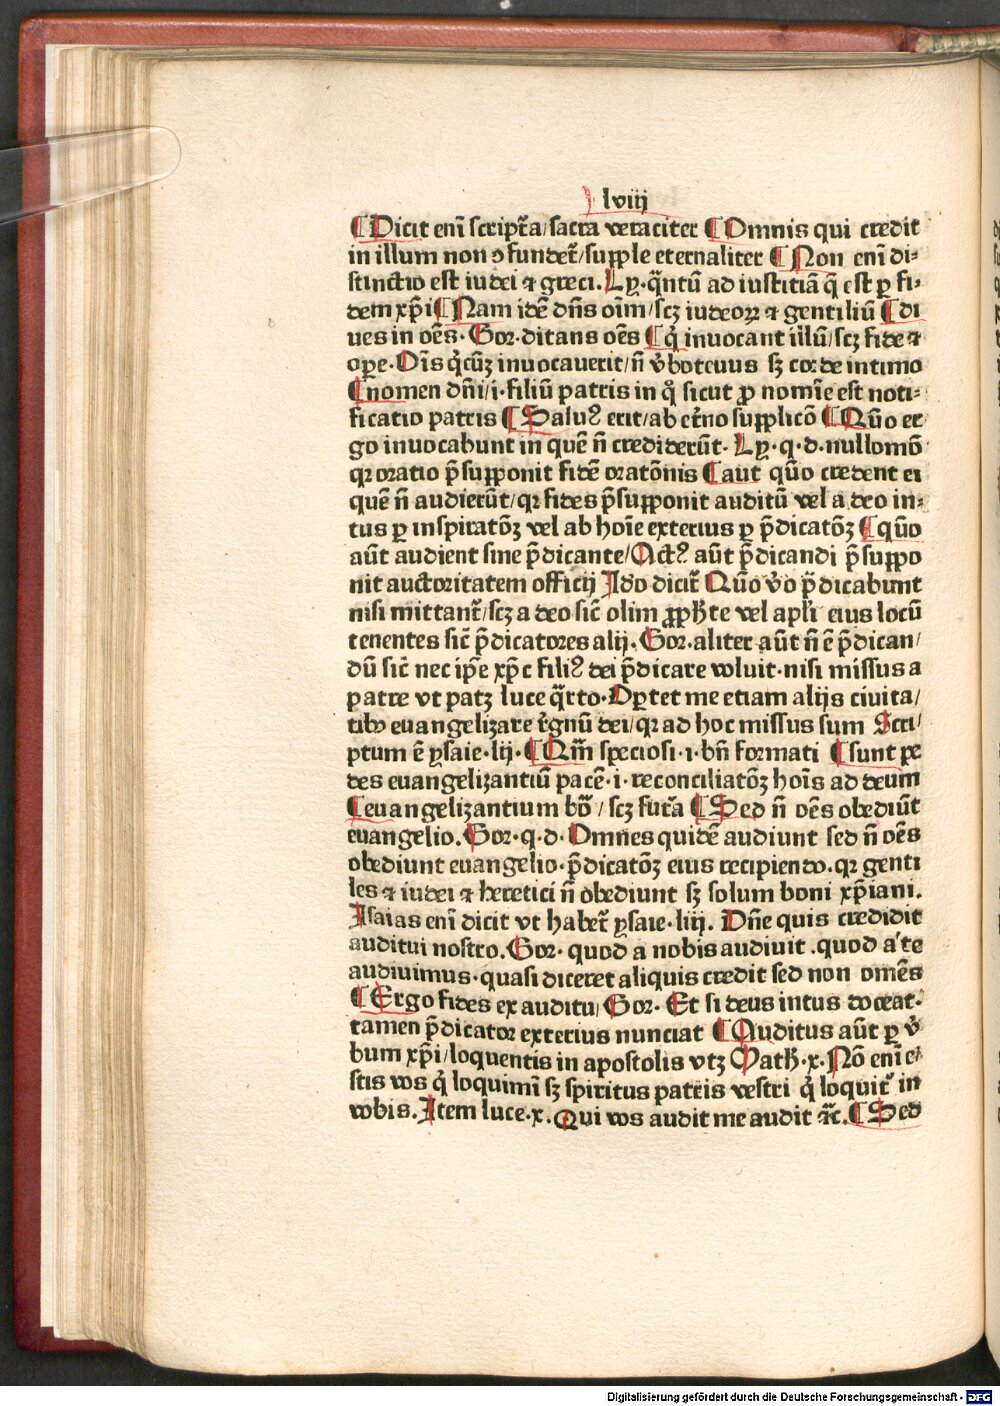 lviij
¶ Dicit eni̅ script̅a/sacra veraciter ¶ Omnis qui credit
in illum non ꝯfundet̅/supple eternaliter ¶ Non eni̅ di⸗
stinctio est iudei ⁊ greci. Ly. q̅ntu̅ ad iustitia̅ q̅ est ꝑ fi⸗
dem xp̅i ¶ Nam ide̅ dn̅s oi̅m/scꝫ iudeoꝝ ⁊ gentiliu̅ ¶ di
ues in oe̅s. Gor. ditans oe̅s ¶ q̇ inuocant illu̅/scꝫ fide ⁊
oꝑe. Oi̅s q̇cu̅ꝫ inuocauerit/n̅ v̾botenus sꝫ corde intimo
¶ nomen dn̅i/.i. filiu̅ patris in q̊ sicut ꝓ nomi̅e est noti⸗
ficatio patris ¶ Salu⁹ erit/ab et̅no supplico̅ ¶ Quo̅ er
go inuocabunt in que̅ n̅ credideru̅t. Ly. q. d. nullomo̅
qꝛ oratio p̅supponit fide̅ orato̅nis ¶ aut quo̅ credent ei
que̅ n̅ audieru̅t/qꝛ fides p̅supponit auditu̅ vel a deo in⸗
tus ꝑ inspirato̅ꝫ vel ab hoi̅e exterius ꝑ p̅dicato̅ꝫ ¶ quo̅
au̅t audient sine p̅dicante/Act⁹ au̅t p̅dicandi p̅suppo
nit auctoritatem officij Ido dicit̅ Quo̅ v̾o p̅dicabunt
nisi mittant̅/scꝫ a deo sic̅ olim ꝓph̅te vel apl̅i eius locu̅
tenentes sic̅ p̅dicatores alij. Gor. aliter au̅t n̅ e̅ p̅dican/
du̅ sic̅ nec ip̅e xp̅c fili⁹ dei p̅dicare voluit. nisi missus a
patre vt patꝫ luce q̅rto. Oꝑtet me etiam alijs ciuita/
tibꝰ euangelizare re̅gnu̅ dei/qꝛ ad hoc missus sum Scri/
ptum e̅ ysaie. lij. ¶ Qm̅ speciosi .i. bn̅ formati ¶ sunt pe
des euangelizantiu̅ pace̅ .i. reconciliato̅ꝫ hoi̅s ad deum
¶ euangelizantium bo̅/scꝫ fut̅a ¶ Sed n̅ oe̅s obediu̅t
euangelio. Gor. q. d. Omnes quide̅ audiunt sed n̅ oe̅s
obediunt euangelio. p̅dicato̅ꝫ eius recipiendo. qꝛ genti
les ⁊ iudei ⁊ heretici n̅ obediunt sꝫ solum boni xp̅iani.
Isaias eni̅ dicit vt habet̅ ysaie. liij. Dn̅e quis credidit
auditui nostro. Gor. quod a nobis audiuit .quod a te
audiuimus. quasi diceret aliquis credit sed non ome̅s
¶ Ergo fides ex auditu/ Gor. Et si deus intus doceat.
tamen p̅dicator exterius nunciat ¶ Auditus au̅t ꝑ v̾
bum xp̅i/loquentis in apostolis vtꝫ Math. x. No̅ eni̅ e/
stis vos q̇ loquimi̅ sꝫ spiritus patris vestri q̇ loquit̅ in
vobis. Item luce. x. Qui vos audit me audit ⁊c̅. ¶ Sed
Digitalisierung gefördert durch die Deutsche Forschungsgemeinschaft - DFG